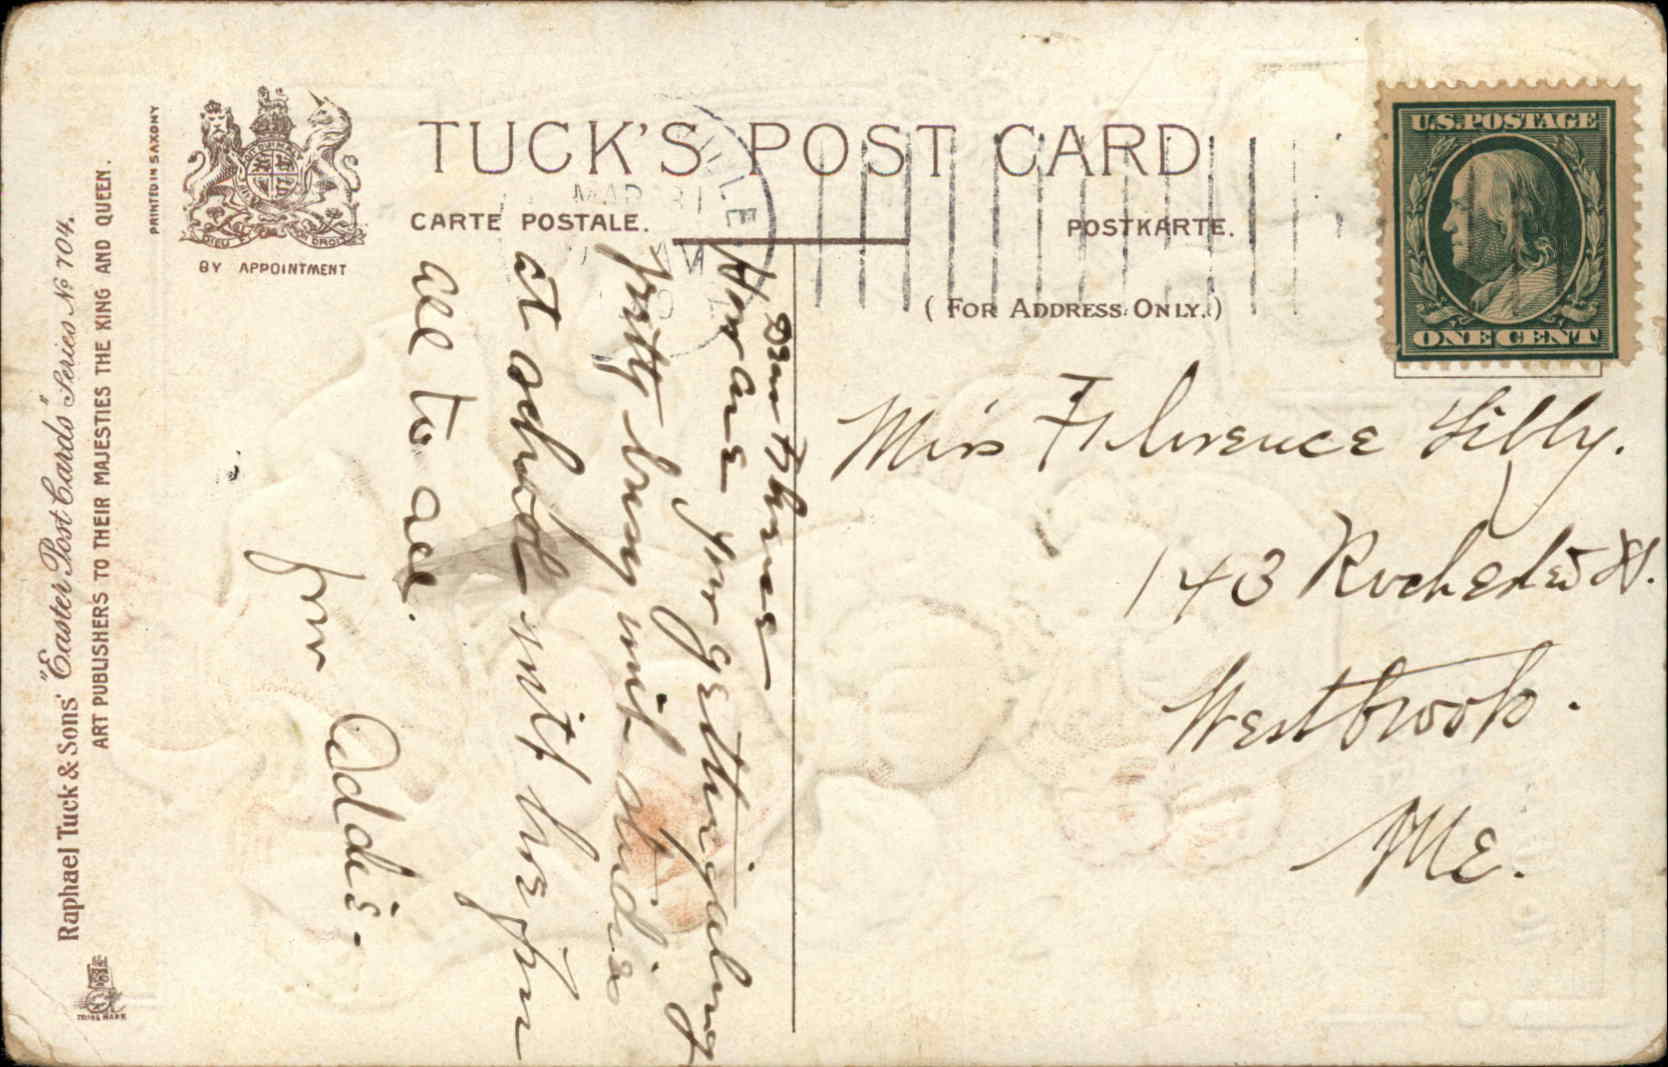 TUCK'S POST CARD
CARTE POSTALE.
POSTKARTE.
(FOR ADDRESS ONLY.)
BY APPOINTMENT
PRINTED IN SAXONY
Raphael Tuck & Sons' "Easter Post Cards" Series No 704.
ART PUBLISHERS TO THEIR MAJESTIES THE KING AND QUEEN.
TRADE MARK
U.S. POSTAGE
ONE CENT
MAR 31
Miss Florence Libby.
143 Rochester St.
Westbrook.
Me.
Dear Florence
How are you getting along
pretty busy with studies
at school with love from
all to all.
from Addie.